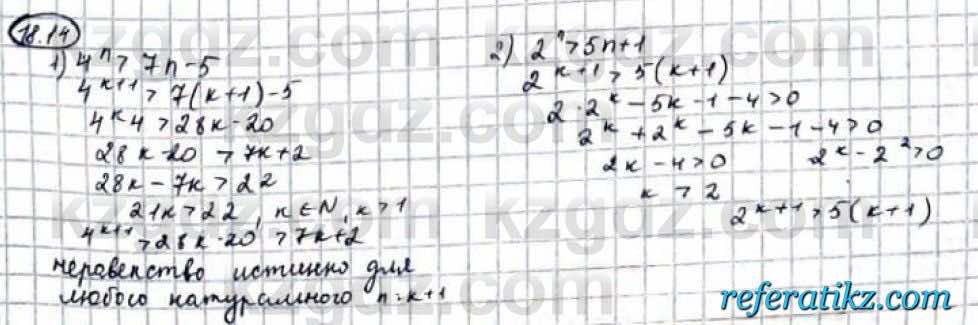 18.14
1) 4ⁿ > 7n - 5
4ᵏ⁺¹ > 7(k+1) - 5
4ᵏ4 > 28k - 20
28k - 20 > 7k + 2
28k - 7k > 22
21k > 22, k ∈ N, k > 1
4ᵏ⁺¹ > 28k - 20 > 7k + 2
неравенство истинно для
любого натурального n = k+1
2) 2ⁿ > 5n + 1
2ᵏ⁺¹ > 5(k+1)
2·2ᵏ - 5k - 1 - 4 > 0
2ᵏ + 2ᵏ - 5k - 1 - 4 > 0
2k - 4 > 0 2ᵏ - 2² > 0
k > 2
2ᵏ⁺¹ > 5(k+1)
kzgdz.com
referatikz.com